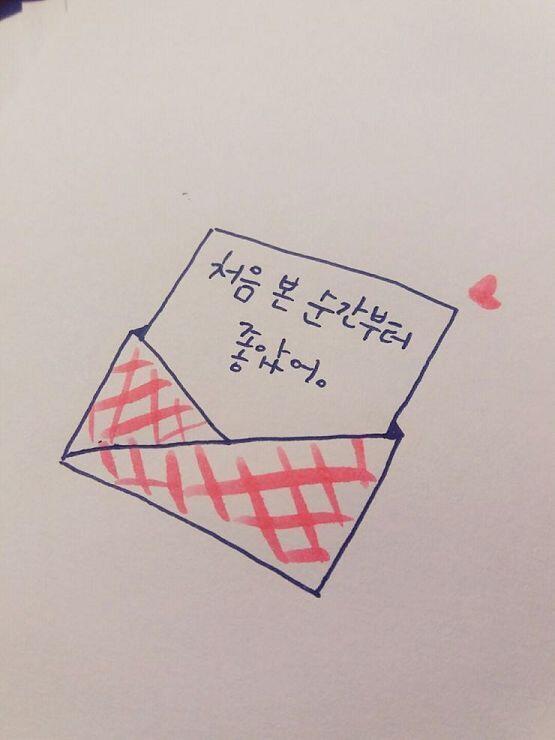 처음 본 순간부터
좋았어。